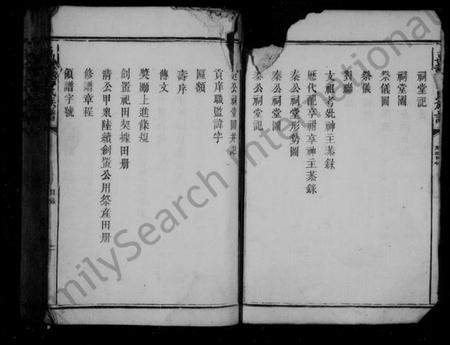 祠堂記
祠堂圖
祭儀圖
祭儀
對聯
支祖考妣神主基錄
歷代配享祔享神主基錄
秦公祠堂形勢圖
秦公祠堂圖
秦公祠堂記
公祠堂圖
貢庠職監諱字
匾額
壽序
傳文
獎聯上進條規
創置祀田契據田册
清公甲裏陸續創置公用祭產田册
修譜章程
領譜字號
FamilySearch International